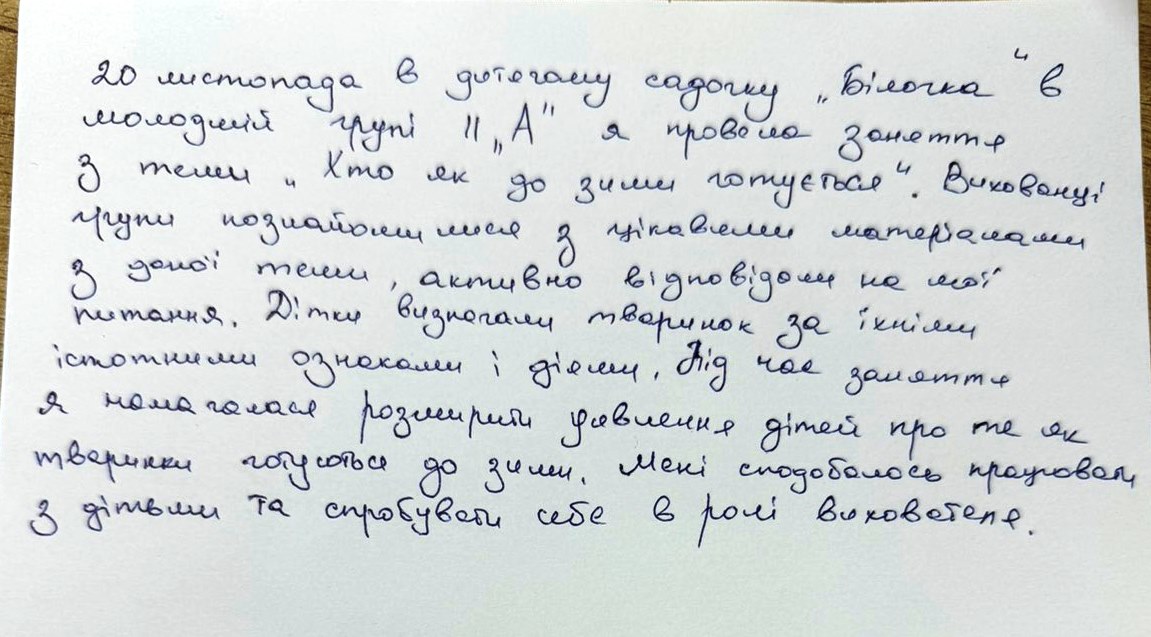 20 листопада в дитячому садочку „Білочка" в
молодшій групі II „А" я провела заняття
з теми „Хто як до зими готується". Вихованці
групи познайомилися з цікавими матеріалами
з даної теми, активно відповідали на мої
питання. Дітки визначали тваринок за їхніми
істотними ознаками і діями. Під час заняття
я намагалася розширити уявлення дітей про те як
тваринки готуються до зими. Мені сподобалось працювати
з дітьми та спробувати себе в ролі вихователя.